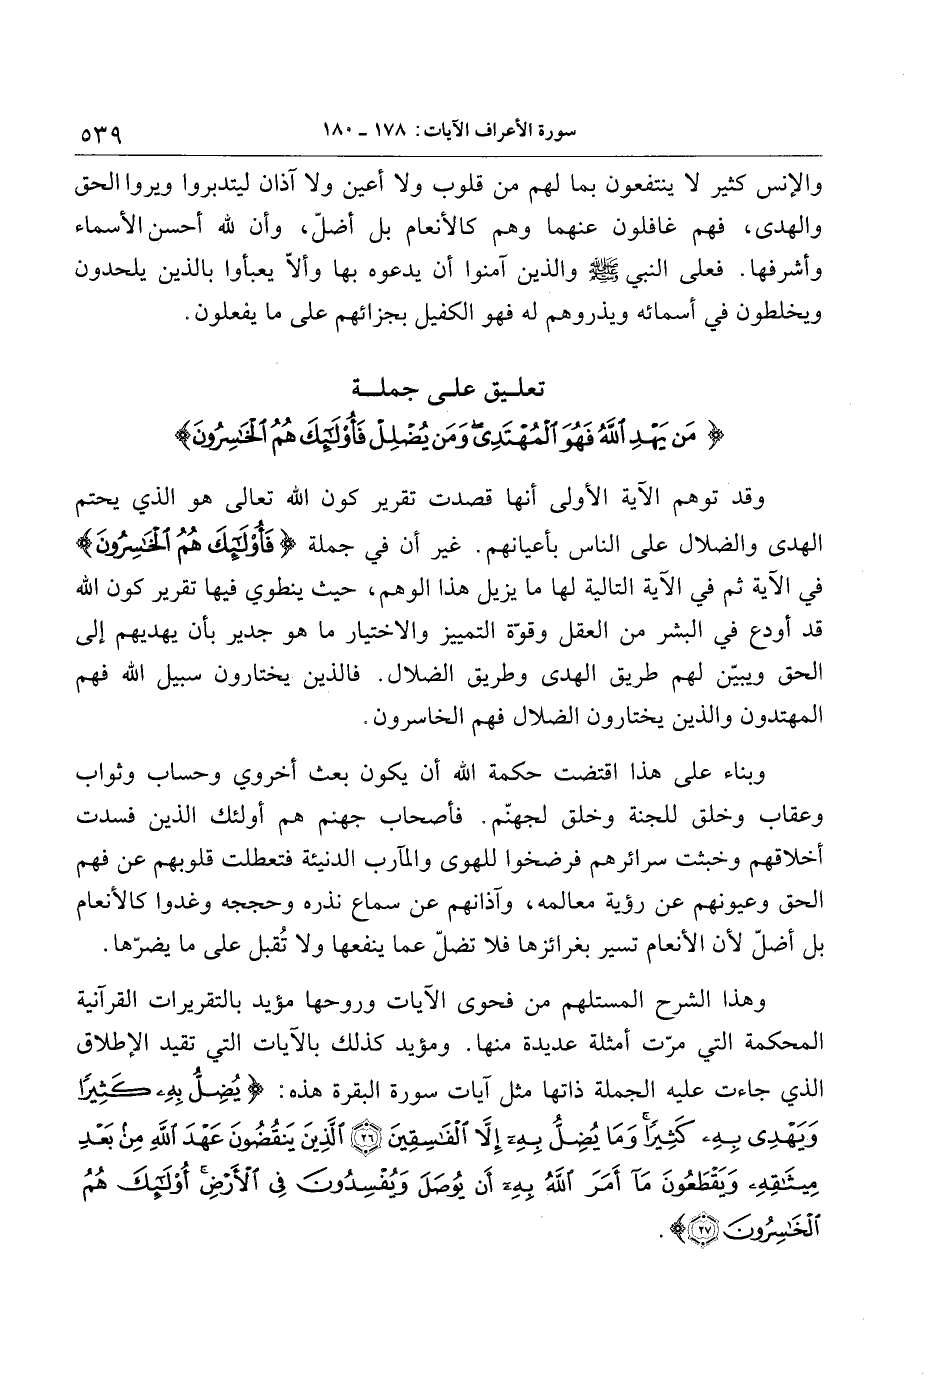 سورة الأعراف الآيات: ١٧٨ - ١٨٠ ٥٣٩
والإنس كثير لا ينتفعون بما لهم من قلوب ولا أعين ولا آذان ليتدبروا ويروا الحق
والهدى، فهم غافلون عنهما وهم كالأنعام بل أضلّ، وأن لله أحسن الأسماء
وأشرفها. فعلى النبي ﷺ والذين آمنوا أن يدعوه بها وألاّ يعبأوا بالذين يلحدون
ويخلطون في أسمائه ويذروهم له فهو الكفيل بجزائهم على ما يفعلون.
تعليق على جملة
﴿ مَن يَهْدِ ٱللَّهُ فَهُوَ ٱلْمُهْتَدِيۖ وَمَن يُضْلِلْ فَأُوْلَٰٓئِكَ هُمُ ٱلْخَٰسِرُونَ﴾
وقد توهم الآية الأولى أنها قصدت تقرير كون الله تعالى هو الذي يحتم
الهدى والضلال على الناس بأعيانهم. غير أن في جملة ﴿ فَأُوْلَٰٓئِكَ هُمُ ٱلْخَٰسِرُونَ﴾
في الآية ثم في الآية التالية لها ما يزيل هذا الوهم، حيث ينطوي فيها تقرير كون الله
قد أودع في البشر من العقل وقوّة التمييز والاختيار ما هو جدير بأن يهديهم إلى
الحق ويبيّن لهم طريق الهدى وطريق الضلال. فالذين يختارون سبيل الله فهم
المهتدون والذين يختارون الضلال فهم الخاسرون.
وبناء على هذا اقتضت حكمة الله أن يكون بعث أخروي وحساب وثواب
وعقاب وخلق للجنة وخلق لجهنّم. فأصحاب جهنم هم أولئك الذين فسدت
أخلاقهم وخبثت سرائرهم فرضخوا للهوى والمآرب الدنيئة فتعطلت قلوبهم عن فهم
الحق وعيونهم عن رؤية معالمه، وآذانهم عن سماع نذره وحججه وغدوا كالأنعام
بل أضلّ لأن الأنعام تسير بغرائزها فلا تضلّ عما ينفعها ولا تُقبل على ما يضرّها.
وهذا الشرح المستلهم من فحوى الآيات وروحها مؤيد بالتقريرات القرآنية
المحكمة التي مرّت أمثلة عديدة منها. ومؤيد كذلك بالآيات التي تقيد الإطلاق
الذي جاءت عليه الجملة ذاتها مثل آيات سورة البقرة هذه: ﴿ يُضِلُّ بِهِۦ كَثِيرًا
وَيَهْدِي بِهِۦ كَثِيرًاۚ وَمَا يُضِلُّ بِهِۦٓ إِلَّا ٱلْفَٰسِقِينَ ٢٦ ٱلَّذِينَ يَنقُضُونَ عَهْدَ ٱللَّهِ مِنۢ بَعْدِ
مِيثَٰقِهِۦ وَيَقْطَعُونَ مَآ أَمَرَ ٱللَّهُ بِهِۦٓ أَن يُوصَلَ وَيُفْسِدُونَ فِي ٱلْأَرْضِۚ أُوْلَٰٓئِكَ هُمُ
ٱلْخَٰسِرُونَ ٢٧﴾.